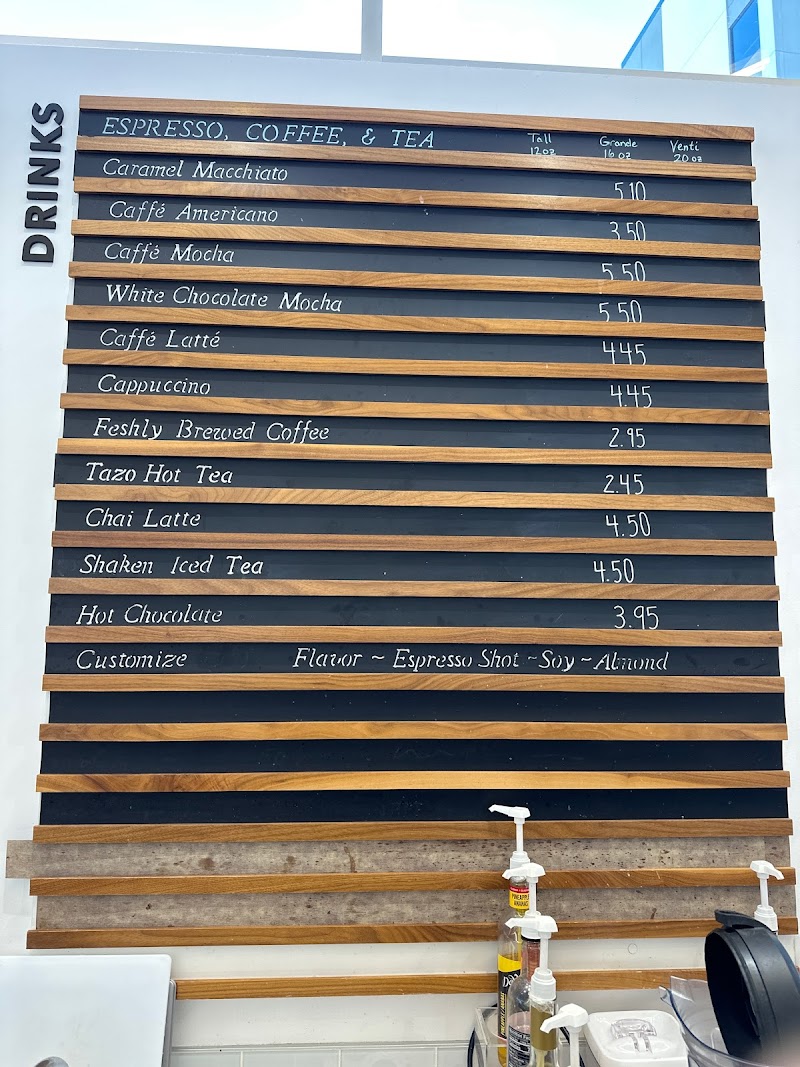 DRINKS
ESPRESSO, COFFEE, & TEA Tall 12oz Grande 16 oz Venti 20 oz
Caramel Macchiato 5.10
Caffé Americano 3.50
Caffé Mocha 5.50
White Chocolate Mocha 5.50
Caffé Latté 4.45
Cappuccino 4.45
Feshly Brewed Coffee 2.95
Tazo Hot Tea 2.45
Chai Latte 4.50
Shaken Iced Tea 4.50
Hot Chocolate 3.95
Customize Flavor ~ Espresso Shot ~ Soy ~ Almond
PINEAPPLE
ANANAS